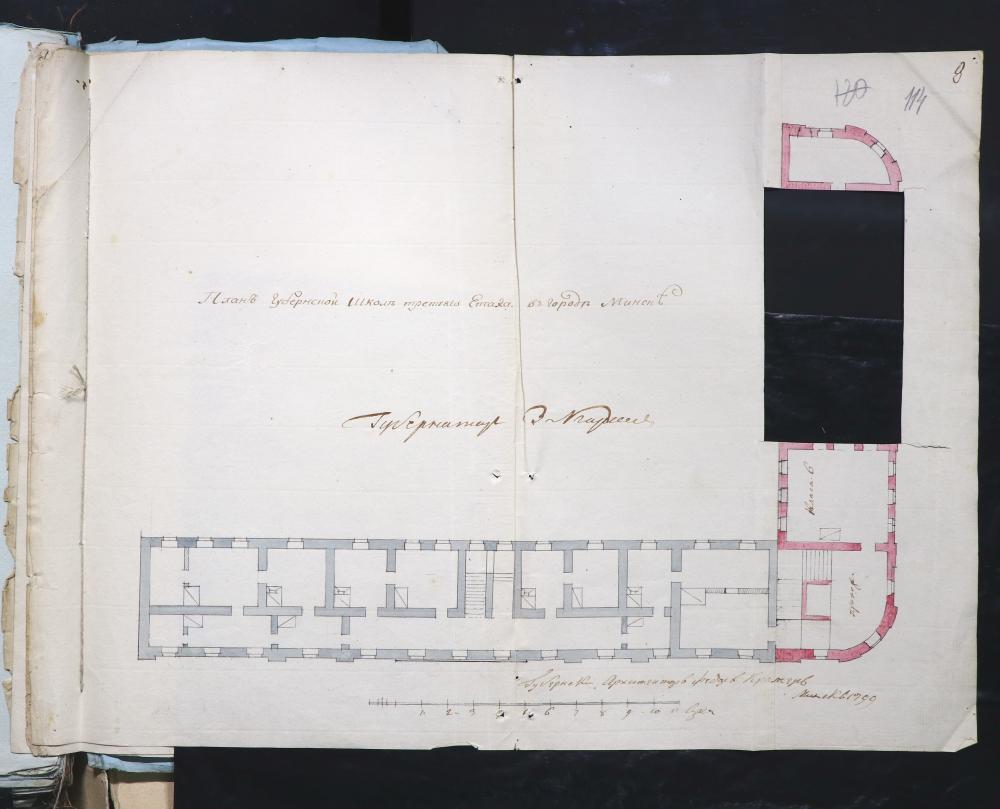 9
120
114
Планъ Губернской Школы третьяго Етажа. въ городѣ Минскѣ
Губернаторъ З Карнеев
Класъ 6
Губернск. Архитекторъ Федоръ Крамеръ
Минскъ 1799
1 2 3 4 5 6 7 8 9 10 11 Саж.